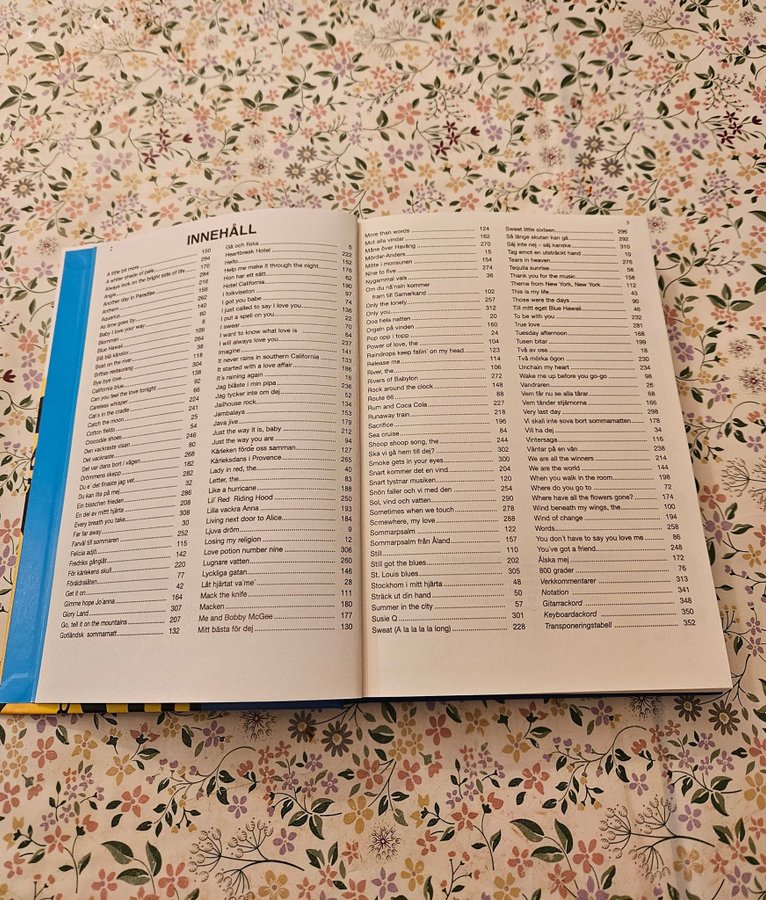 2
INNEHÅLL
A little bit more 150
A whiter shade of pale 294
Always look on the bright side of life 170
Angie 284
Another day in Paradise 216
Anthem 156
Aquarius 262
As time goes by 140
Baby I love your way 60
Blomman 8
Blue Hawaii 109
Blå blå känslor 264
Boat on the river 38
Brittas restaurang 118
Bye bye love 304
California blue 138
Can you feel the love tonight 92
Careless whisper 66
Cat's in the cradle 224
Catch the moon 241
Cotton fields 25
Crocodile shoes 54
Den vackraste visan 246
Det vackraste 80
Det var dans bort i vägen 268
Drömmens skepp 182
Du e' det finaste jag vet 282
Du kan lita på mej 32
Ein bisschen frieden 286
En del av mitt hjärta 208
Every breath you take 308
Far far away 30
Farväl till sommaren 252
Felicia adjö 115
Fredriks gånglåt 142
För kärlekens skull 220
Föräldralåten 77
Get it on 42
Gimme hope Jo'anna 164
Glory Land 307
Go, tell it on the mountains 207
Gotländsk sommarnatt 132
Gå och fiska 5
Heartbreak Hotel 222
Hello 152
Help me make it through the night 176
Hon har ett sätt 62
Hotel California 190
I folkviseton 97
I got you babe 74
I just called to say I love you 136
I put a spell on you 22
I swear 70
I want to know what love is 64
I will always love you 237
Imagine 141
It never rains in southern California 133
It started with a love affair 186
It's raining again 16
Jag blåste i min pipa 236
Jag tycker inte om dej 52
Jailhouse rock 134
Jambalaya 153
Java jive 179
Just the way it is, baby 212
Just the way you are 94
Kärleken förde oss samman 107
Kärleksdans i Provence 265
Lady in red, the 40
Letter, the 83
Like a hurricane 188
Lil' Red Riding Hood 250
Lilla vackra Anna 193
Living next door to Alice 184
Ljuva dröm 9
Losing my religion 12
Love potion number nine 306
Lugnare vatten 260
Lyckliga gatan 146
Låt hjärtat va me' 28
Mack the knife 111
Macken 180
Me and Bobby McGee 177
Mitt bästa för dej 130
3
More than words 124
Mot alla vindar 162
Måne över Haväng 270
Mördar-Anders 15
Möte i monsunen 154
Nine to five 274
Nygammal vals 35
Om du nå'nsin kommer
fram till Samarkand 58
Only the lonely 102
Only you 257
Ooa hela natten 312
Orgeln på vinden 20
Pop opp i topp 160
Power of love, the 24
Raindrops keep fallin' on my head 104
Release me 123
River, the 114
Rivers of Babylon 106
Rock around the clock 272
Route 66 148
Rum and Coca Cola 88
Runaway train 127
Sacrifice 218
Sea cruise 196
Shoop shoop song, the 84
Ska vi gå hem till dej? 244
Smoke gets in your eyes 302
Snart kommer det en vind 300
Snart tystnar musiken 204
Snön faller och vi med den 120
Sol, vind och vatten 254
Sometimes when we touch 290
Somewhere, my love 278
Sommarpsalm 288
Sommarpsalm från Åland 122
Still 157
Still got the blues 110
St. Louis blues 202
Stockholm i mitt hjärta 305
Sträck ut din hand 48
Summer in the city 50
Susie Q 57
Sweat (A la la la la long) 301
228
Sweet little sixteen 296
Så länge skutan kan gå 292
Säj inte nej – säj kanske 310
Tag emot en utsträckt hand 10
Tears in heaven 276
Tequila sunrise 56
Thank you for the music 158
Theme from New York, New York 112
This is my life 43
Those were the days 90
Till mitt eget Blue Hawaii 46
To be with you 232
True love 281
Tuesday afternoon 168
Tusen bitar 199
Två av oss 18
Två mörka ögon 230
Unchain my heart 234
Wake me up before you go-go 98
Vandraren 26
Vem får nu se alla tårar 68
Vem tänder stjärnorna 166
Very last day 298
Vi skall inte sova bort sommarnatten 178
Vill ha dej
Vintersaga 116
Väntar på en vän 238
We are all the winners 214
We are the world 144
When you walk in the room 198
Where do you go to 72
Where have all the flowers gone? 174
Wind beneath my wings, the 100
Wind of change 194
Words 258
You don't have to say you love me 86
You've got a friend 248
Älska mej 172
800 grader 76
Verkkommentarer 313
Notation 341
Gitarrackord 348
Keyboardackord 350
Transponeringstabell 352